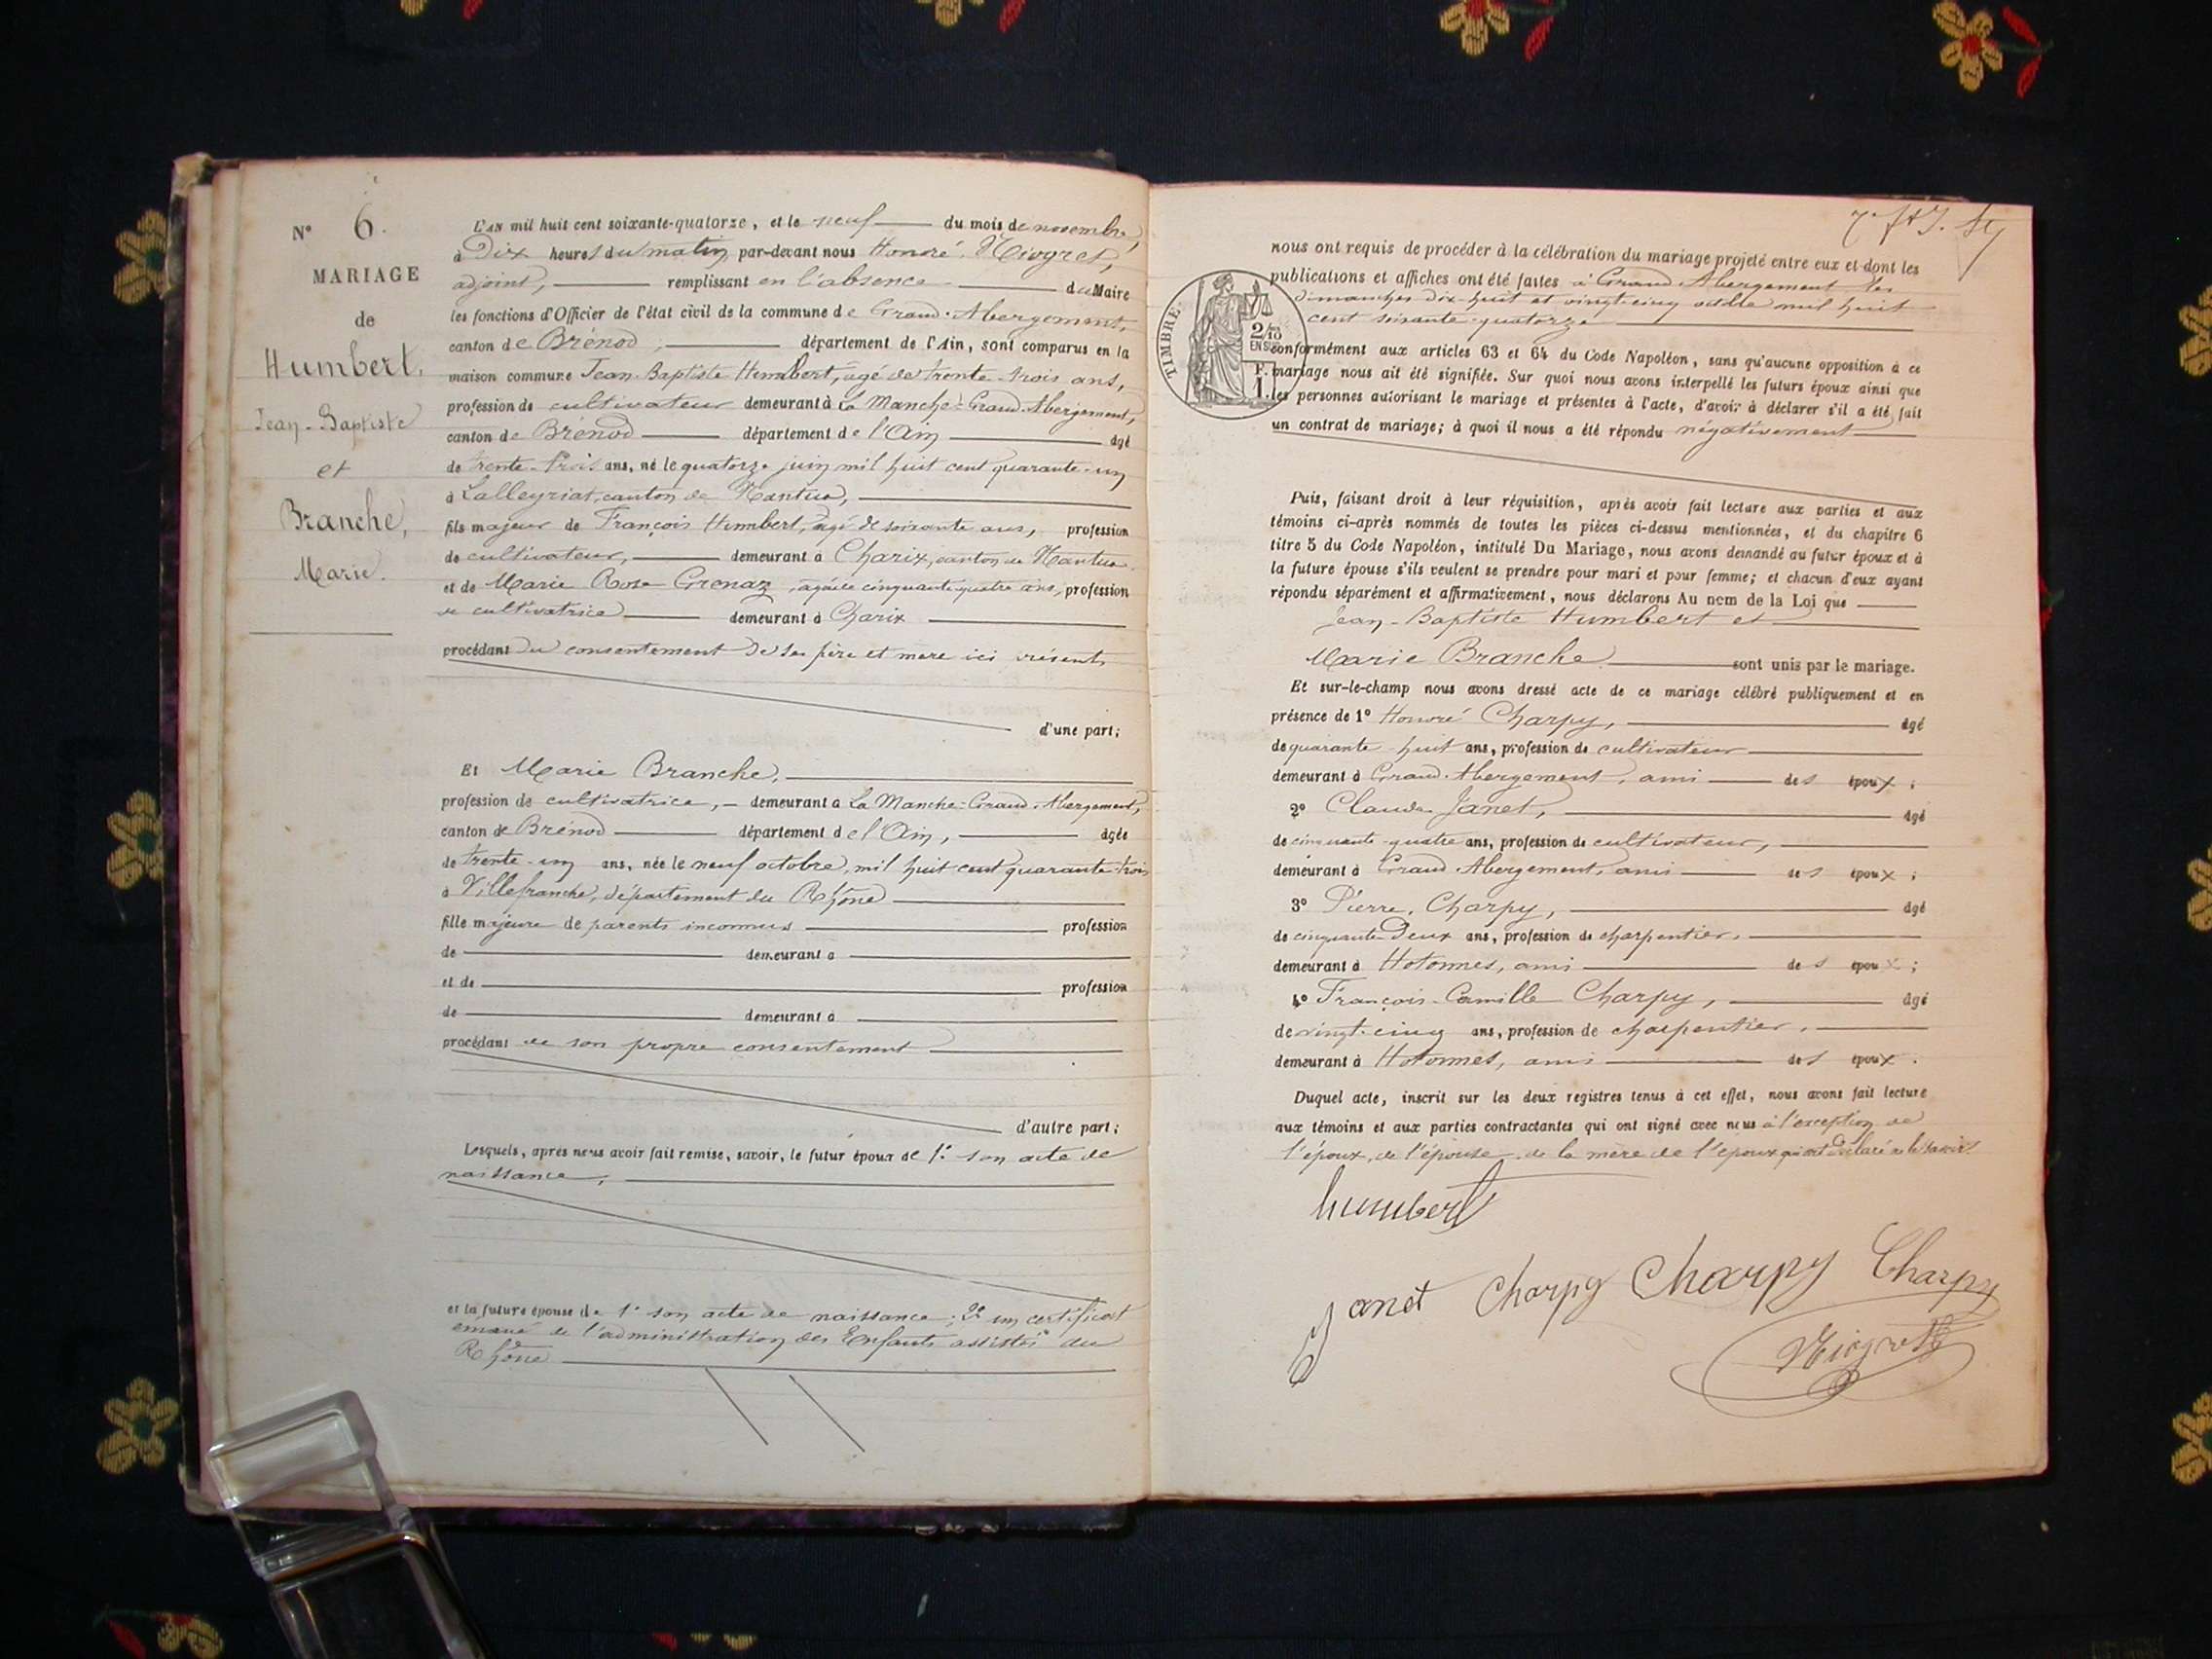 N° 6.
MARIAGE
de
Humbert,
Jean-Baptiste
et
Branche,
Marie.
L'AN mil huit cent soixante-quatorze, et le neuf du mois de novembre,
à Dix heures du matin par-devant nous Honoré
adjoint, remplissant en l'absence du Maire
les fonctions d'Officier de l'état civil de la commune de Grand-Abergement,
canton de Brénod, département de l'Ain, sont comparus en la
maison commune Jean-Baptiste Humbert, agé de trente-trois ans,
profession de cultivateur demeurant à La Manche-Grand-Abergement,
canton de Brénod département de l'Ain âgé
de trente-trois ans, né le quatorze juin mil huit cent quarante-un
à Lalleyriat, canton de Nantua,
fils majeur de François Humbert, âgé de soixante ans, profession
de cultivateur, demeurant à Charix, canton de Nantua
et de Marie Rose Grenaz, agée de cinquante-quatre ans, profession
de cultivatrice demeurant à Charix
procédant du consentement de ses père et mère ici présents
d'une part;
Et Marie Branche,
profession de cultivatrice, demeurant à La Manche-Grand-Abergement,
canton de Brénod département de l'Ain, âgée
de trente-un ans, née le neuf octobre, mil huit cent quarante-trois
à Villefranche, département du Rhône
fille majeure de parents inconnus profession
de demeurant à
et de profession
de demeurant à
procédant de son propre consentement
d'autre part;
Lesquels, après nous avoir fait remise, savoir, le futur époux de 1° son acte de
naissance,
et la future épouse de 1° son acte de naissance; 2° un certificat
émané de l'administration des Enfants assistés du
Rhône
nous ont requis de procéder à la célébration du mariage projeté entre eux et dont les
publications et affiches ont été faites à Grand-Abergement les
dimanches dix-huit et vingt-cinq octobre mil huit
cent soixante-quatorze
TIMBRE
2/10
EN SUS
F.
1.
conformément aux articles 63 et 64 du Code Napoléon, sans qu'aucune opposition à ce
mariage nous ait été signifiée. Sur quoi nous avons interpellé les futurs époux ainsi que
les personnes autorisant le mariage et présentes à l'acte, d'avoir à déclarer s'il a été fait
un contrat de mariage; à quoi il nous a été répondu négativement
Puis, faisant droit à leur réquisition, après avoir fait lecture aux parties et aux
témoins ci-après nommés de toutes les pièces ci-dessus mentionnées, et du chapitre 6
titre 5 du Code Napoléon, intitulé Du Mariage, nous avons demandé au futur époux et à
la future épouse s'ils veulent se prendre pour mari et pour femme; et chacun d'eux ayant
répondu séparément et affirmativement, nous déclarons Au nom de la Loi que
Jean-Baptiste Humbert et
Marie Branche sont unis par le mariage.
Et sur-le-champ nous avons dressé acte de ce mariage célébré publiquement et en
présence de 1° Honoré Charpy, âgé
de quarante-huit ans, profession de cultivateur
demeurant à Grand-Abergement, ami des époux;
2° Claude Janet, âgé
de cinquante-quatre ans, profession de cultivateur,
demeurant à Grand-Abergement, ami des époux;
3° Pierre Charpy, âgé
de cinquante-deux ans, profession de charpentier,
demeurant à Hotonnes, ami des époux;
4° François-Camille Charpy, âgé
de vingt-cinq ans, profession de charpentier,
demeurant à Hotonnes, ami des époux.
Duquel acte, inscrit sur les deux registres tenus à cet effet, nous avons fait lecture
aux témoins et aux parties contractantes qui ont signé avec nous à l'exception de
l'époux, de l'épouse, de la mère de l'époux qui ont déclaré ne le savoir
humbert
Janet Charpy Charpy Charpy